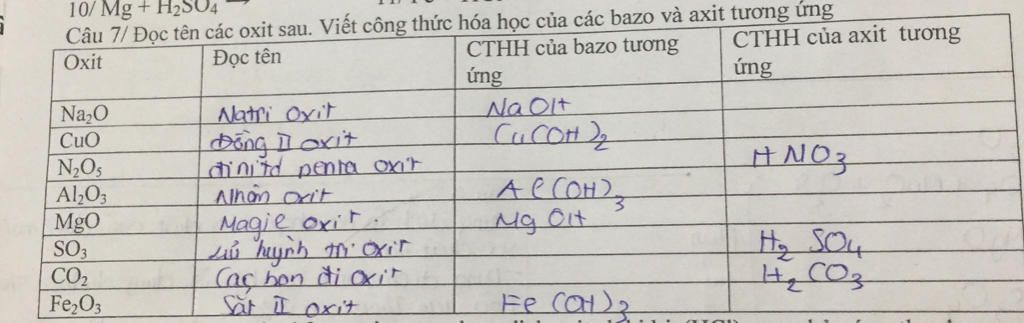 10/ Mg + H₂SO₄
Câu 7/ Đọc tên các oxit sau. Viết công thức hóa học của các bazo và axit tương ứng
Oxit Đọc tên CTHH của bazo tương ứng CTHH của axit tương ứng
Na₂O Natri oxit NaOH
CuO Đồng II oxit Cu(OH)₂
N₂O₅ đinitơ penta oxit HNO₃
Al₂O₃ Nhôn oxit Al(OH)₃
MgO Magie oxit Mg OH
SO₃ Lưu huỳnh tri oxit H₂ SO₄
CO₂ Cac bon đi oxit H₂ CO₃
Fe₂O₃ Sắt II oxit Fe (OH)₃